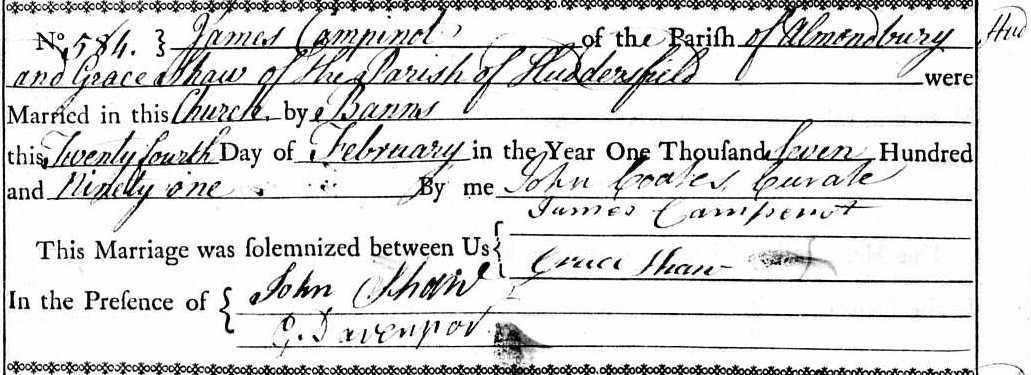 No. 584. } James Campinot of the Pariſh of Almondbury
and Grace Shaw of the Pariſh of Huddersfield were
Married in this Church by Banns
this Twenty fourth Day of February in the Year One Thouſand Seven Hundred
and Ninety one By me John Coates, Curate
James Campenot
This Marriage was ſolemnized between Us {
Grace Shaw
In the Preſence of { John Shaw
G. Davenpor